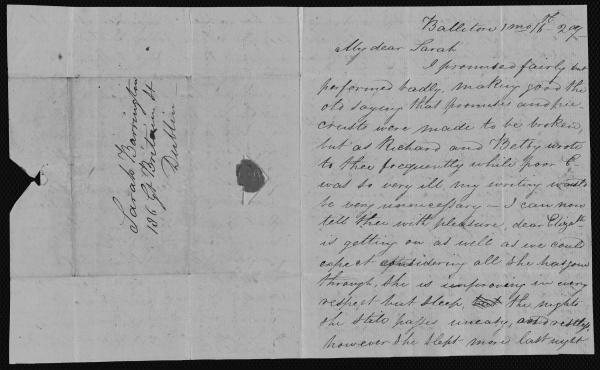 Sarah Barrington
186 Gt Britain St
Dublin
Ballitore 1 mo 16th 29
My dear Sarah
I promised fairly but
performed badly, making good the
old saying that promises and pie
crusts were made to be broken,
but as Richard and Betsy wrote
to thee frequently while poor E
was so very ill my writing would
be very unnecessary — I can now
tell thee with pleasure, dear Elizth
is getting on as well as we could
expect considering all she has gone
through, she is improving in every
respect but sleep, the nights
she still passes uneasy, and restless
however she slept more last night